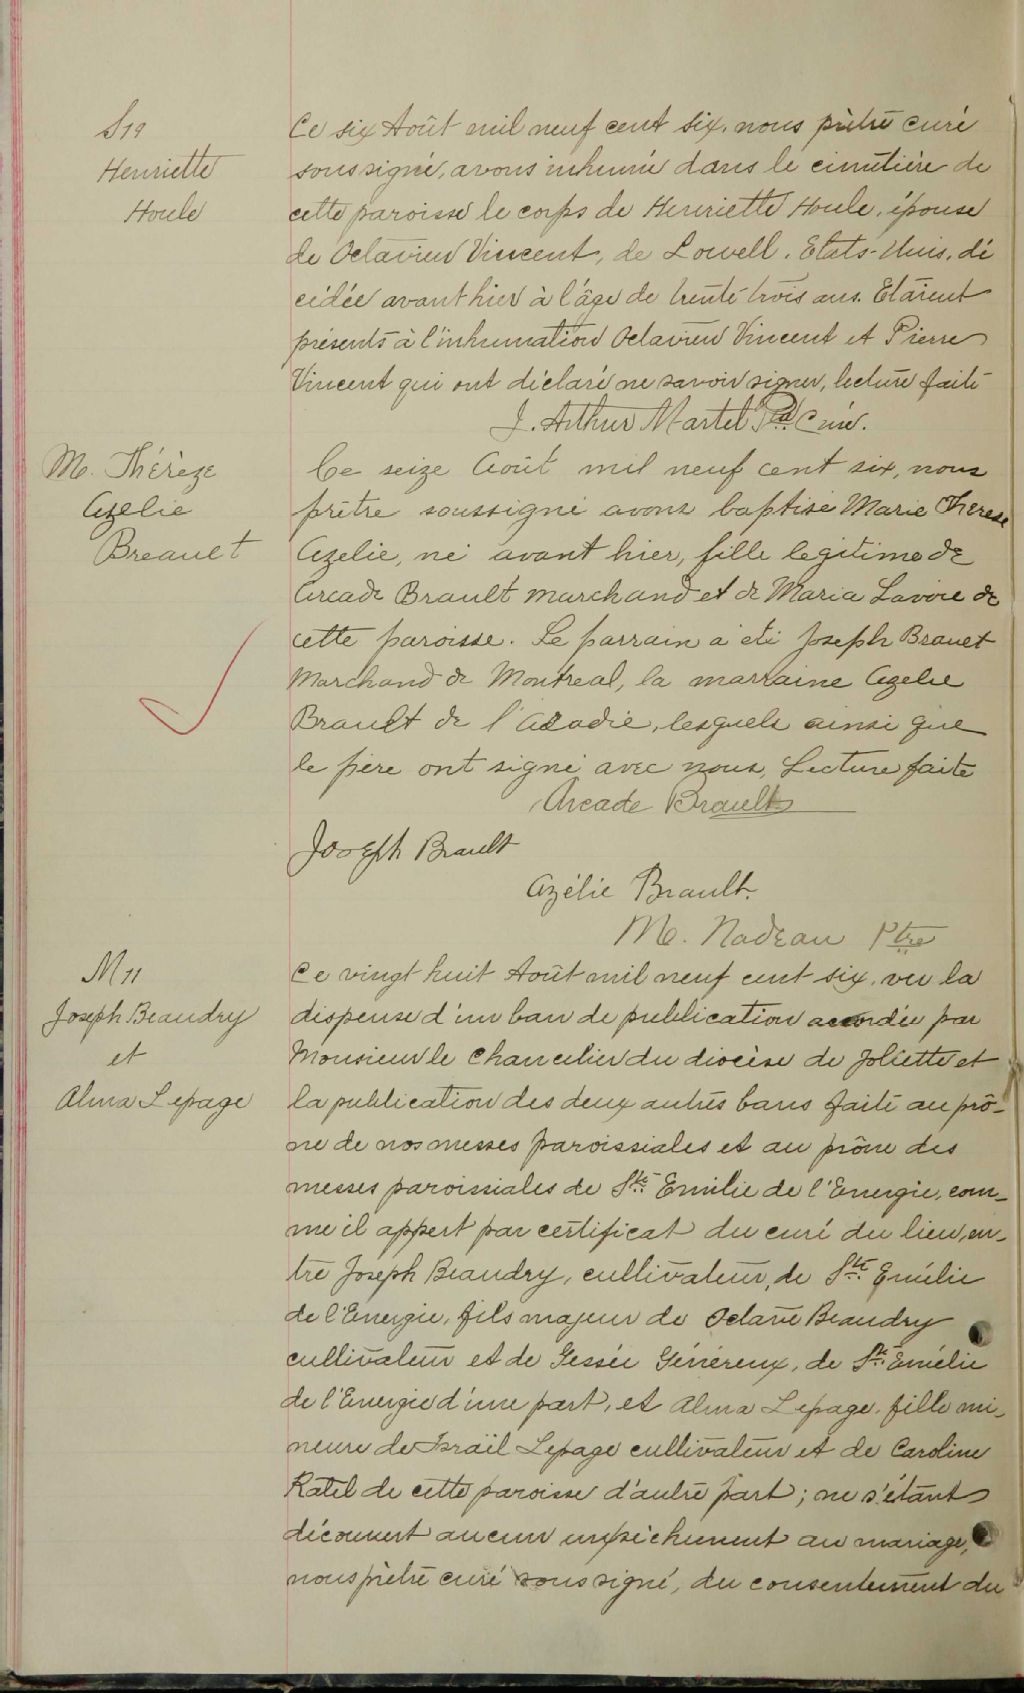 S19
Henriette
Houle
Ce six Août mil neuf cent six, nous prêtre curé
soussigné, avons inhumé dans le cimetière de
cette paroisse le corps de Henriette Houle, épouse
de Octavien Vincent, de Lowell, Etats-Unis, dé
cédée avant hier à l'âge de trente trois ans. Etaient
présents à l'inhumation Octavien Vincent et Pierre
Vincent qui ont déclaré ne savoir signer, lecture faite
J. Arthur Martel Curé.
M. Thérèze
Azelie
Breault
Ce seize Août mil neuf cent six, nous
prêtre soussigné avons baptisé Marie Therese
Azelie, né avant hier, fille legitime de
Arcade Brault marchand et de Maria Lavoie de
cette paroisse. Le parrain a été Joseph Brauet
Marchand de Montreal, la marraine Azelie
Brault de l'Acadie, lesquels ainsi que
le père ont signé avec nous, Lecture faite
Arcade Brault
Joseph Brault
Azélie Brault.
M. Nadeau Ptre
M11
Joseph Beaudry
et
Alma Lepage
Ce vingt huit Août mil neuf cent six, vu la
dispense d'un ban de publication accordée par
Monsieur le Chancelier du diocèse de Joliette et
la publication des deux autres bans faite au prô-
ne de nos messes paroissiales et au prône des
messes paroissiales de Ste Emilie de l'Energie, com-
me il appert par certificat du curé du lieu, en-
tre Joseph Beaudry, cultivateur, de Ste Emélie
de l'Energie, fils majeur de Octave Beaudry
cultivateur et de Gessée Généreux, de Ste Emélie
de l'Energie d'une part, et Alma Lepage, fille mi-
neure de Israïl Lepage cultivateur et de Caroline
Ratel de cette paroisse d'autre part; ne s'étant
découvert aucun empêchement au mariage,
nous prêtre curé soussigné, du consentement du